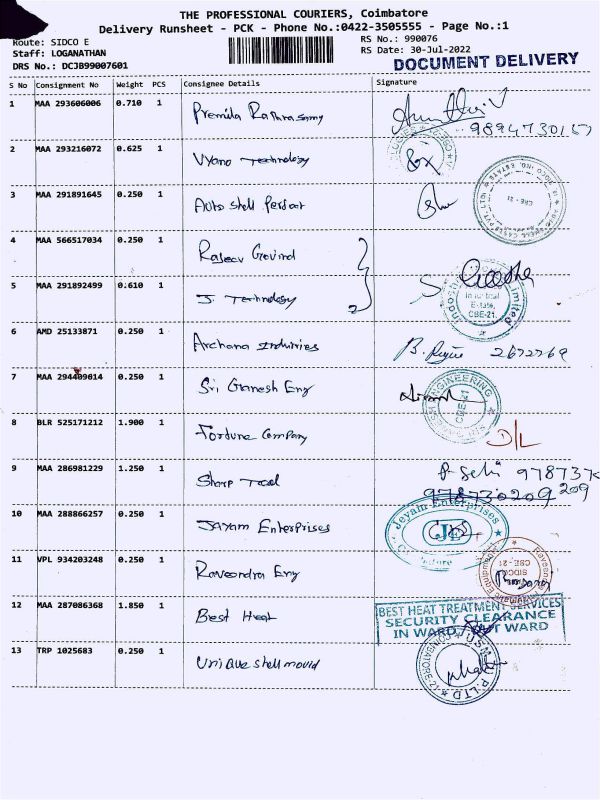 THE PROFESSIONAL COURIERS, Coimbatore
Delivery Runsheet - PCK - Phone No.:0422-3505555 - Page No.:1
Route: SIDCO E
RS No.: 990076
Staff: LOGANATHAN
RS Date: 30-Jul-2022
DRS No.: DCJB99007601
DOCUMENT DELIVERY
S No Consignment No Weight PCS Consignee Details Signature
1 MAA 293606006 0.710 1 Premila
9894730157
2 MAA 293216072 0.625 1 Technology
3 MAA 291891645 0.250 1 Auto Shell
CBE - 21
4 MAA 566517034 0.250 1 Rajeev Govind
5 MAA 291892499 0.610 1 J. Technology
Industrial
Estate,
CBE-21.
6 AMD 25133871 0.250 1 Archana 2672269
7 MAA 294409614 0.250 1 Sri Ganesh Eng
ENGINEERING
CBE-21
8 BLR 525171212 1.900 1 Fortune Company D/L
9 MAA 286981229 1.250 1 Sharp Tool 978737
9787370209 209
10 MAA 288866257 0.250 1 Jayam Enterprises
Jeyam Enterprises
JE
11 VPL 934203248 0.250 1 Raveendra Eng
SIDCO
CBE-21
12 MAA 287086368 1.850 1 Best Heat
BEST HEAT TREATMENT SERVICES
SECURITY CLEARANCE
IN WARD / OUT WARD
13 TRP 1025683 0.250 1 Unique shell mould